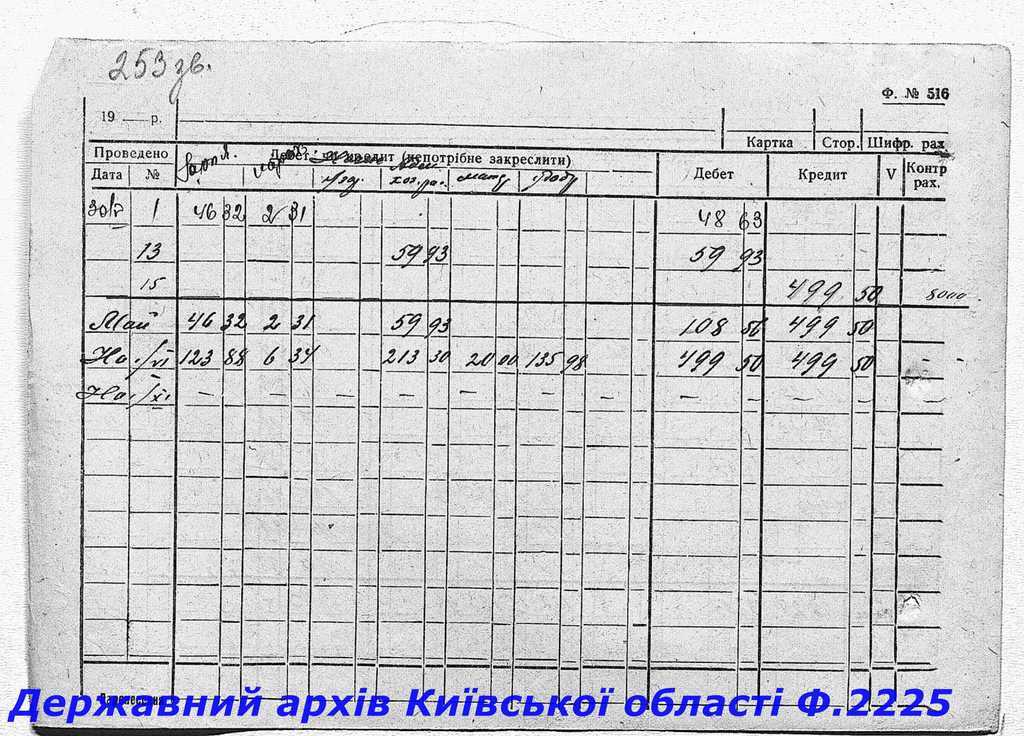 253 зв.
Ф. № 516
19 — р.
Картка Стор. Шифр. рах.
Проведено Дебет чи кредит (непотрібне закреслити)
Дата № Зарпл. Дебет Кредит V Контр рах.
30/V 1 46 32 2 31 48 63
13 59 93 59 93
15 499 50 8000
Май 46 32 2 31 59 93 108 56 499 50
На 1/VI 123 88 6 34 213 30 20 00 135 98 499 50 499 50 —
На 1/XI — — — — — — — — — —
Державний архів Київської області Ф.2225